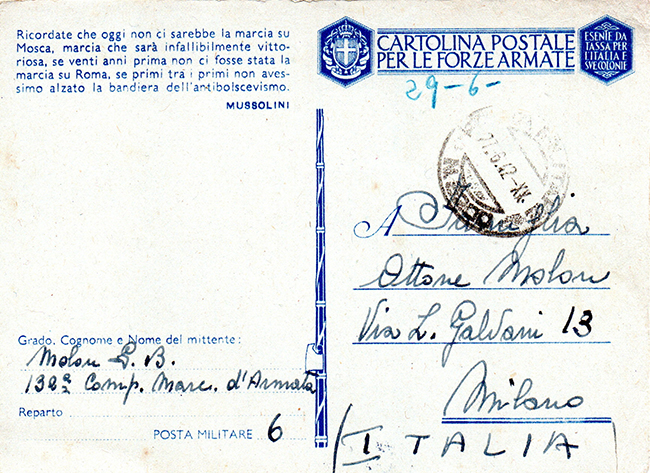 Ricordate che oggi non ci sarebbe la marcia su
Mosca, marcia che sarà infallibilmente vitto-
riosa, se venti anni prima non ci fosse stata la
marcia su Roma, se primi tra i primi non aves-
simo alzato la bandiera dell'antibolscevismo.
MUSSOLINI
Grado, Cognome e Nome del mittente:
Molon G. B.
132ª Comp. Marc. d'Armata
Reparto
POSTA MILITARE 6
CARTOLINA POSTALE
PER LE FORZE ARMATE
ESENTE DA
TASSA PER
L'ITALIA E
SUE COLONIE
29-6-
27.6.42-XX
A Famiglia
Ottone Molon
Via L. Galvani 13
Milano
(ITALIA